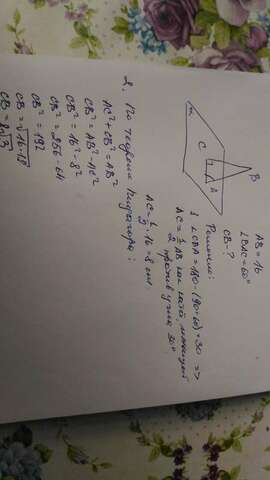 AB = 16
∠BAC = 60°
CB - ?
Решение:
1. ∠CBA = 180 - (90 + 60) = 30 =>
AC = 1/2 AB как катет, лежащий
против угла 30°
AC = 1/2 · 16 = 8 см
2. По теореме Пифагора:
AC² + CB² = AB²
CB² = AB² - AC²
CB² = 16² - 8²
CB² = 256 - 64
CB² = 192
CB = √16·12
CB = 8√3
B
C
A